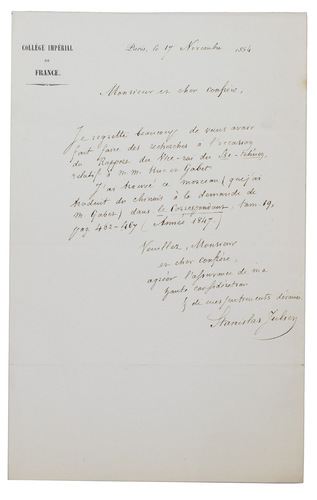 COLLÈGE IMPÉRIAL
DE
FRANCE.
Paris, le 17 Novembre 1854
Monsieur et cher confrère,
Je regrette beaucoup de vous avoir
fait faire des recherches à l'occasion
du Rapport du Vice-roi du
relatif à M M. Huc et Gabet.
J'ai trouvé ce morceau (que j'ai
traduit du chinois à la demande de
M. Gabet) dans le Correspondant, tom. 19,
pag. 462-467 (Année 1847).
Veuillez, Monsieur
et cher confrère,
agréer l'assurance de ma
haute considération
& de mes sentiments dévoués.
Stanislas Julien